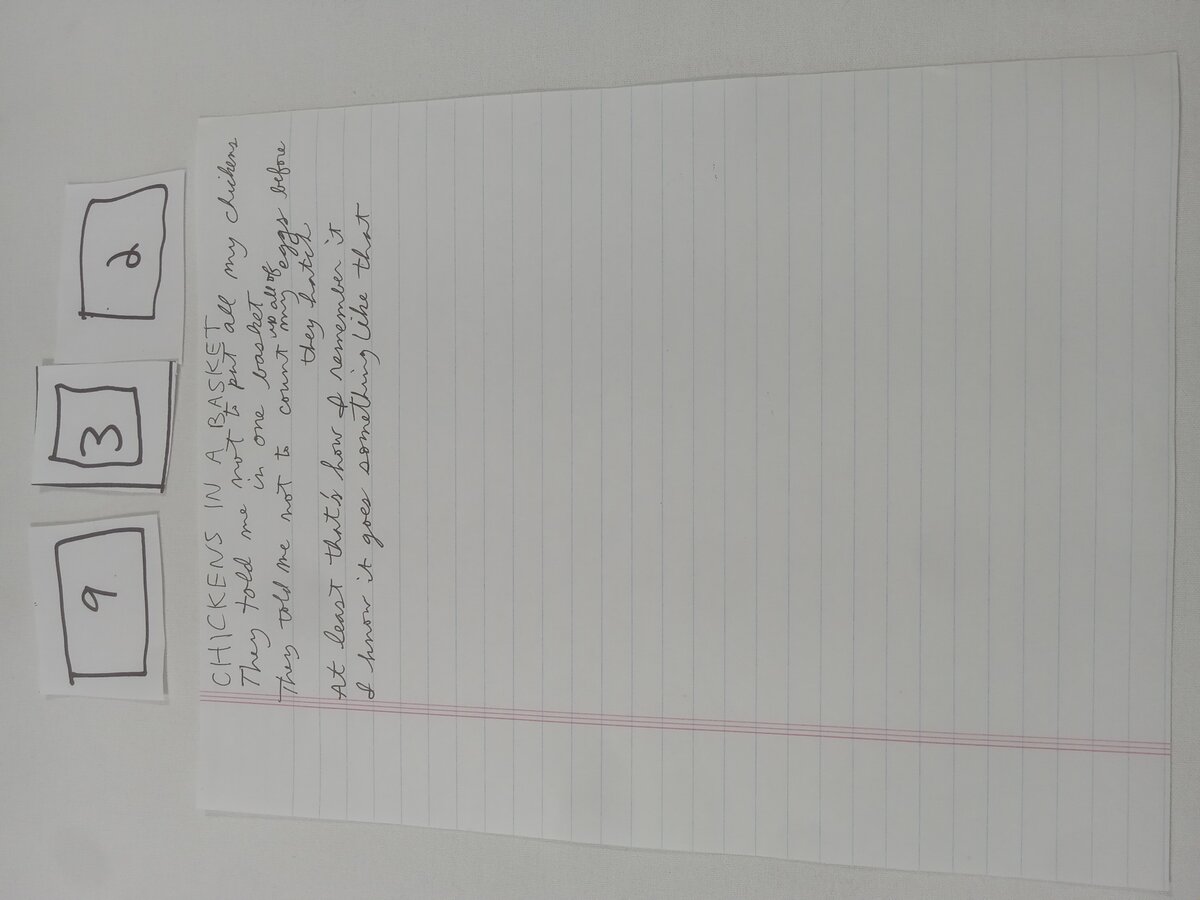 9
3
2
CHICKENS IN A BASKET
They told me not to put all my chickens
in one basket
They told me not to count up all of my eggs before
they hatch
At least that's how I remember it
I know it goes something like that